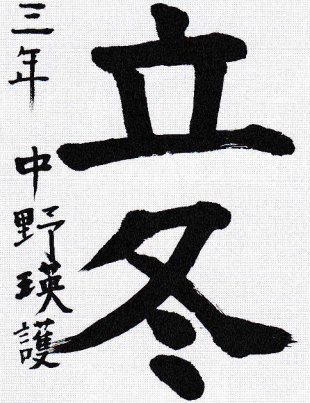 立冬
三年 中野瑛護